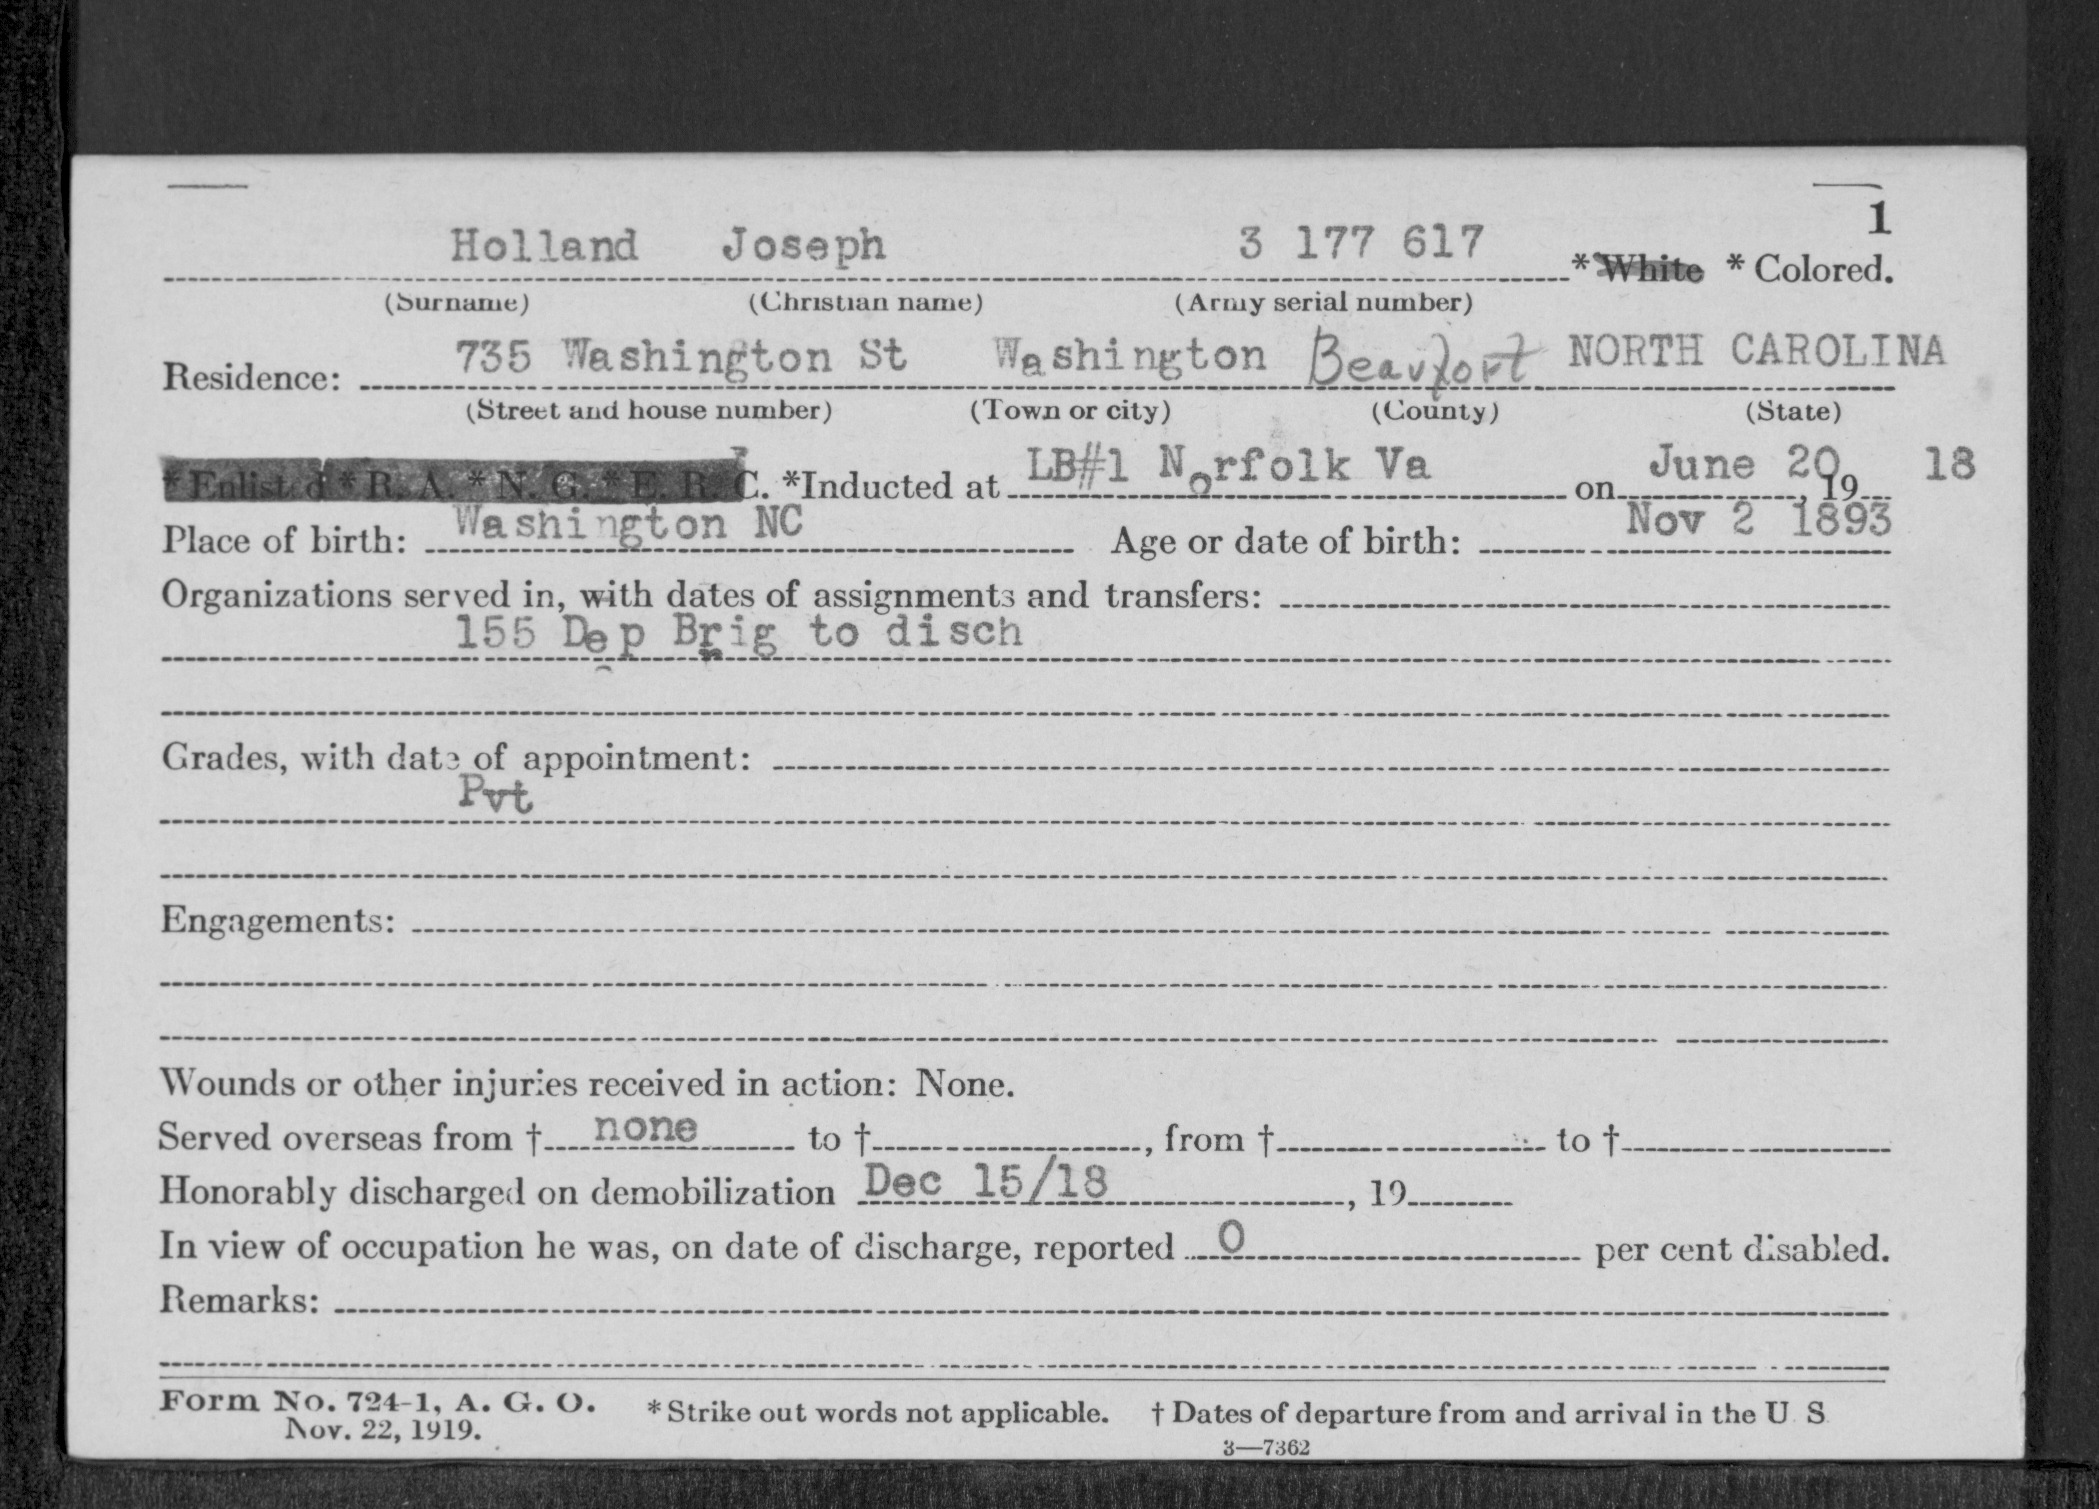 1
Holland Joseph 3 177 617 *White *Colored.
(Surname) (Christian name) (Army serial number)
Residence: 735 Washington St Washington Beaufort NORTH CAROLINA
(Street and house number) (Town or city) (County) (State)
*Enlisted *R. A. *N. G. *E. R. C. *Inducted at LB#1 Norfolk Va on June 20, 19 18
Place of birth: Washington NC Age or date of birth: Nov 2 1893
Organizations served in, with dates of assignments and transfers:
155 Dep Brig to disch
Grades, with date of appointment:
Pvt
Engagements:
Wounds or other injuries received in action: None.
Served overseas from † none to †, from † to †
Honorably discharged on demobilization Dec 15/18, 19
In view of occupation he was, on date of discharge, reported 0 per cent disabled.
Remarks:
Form No. 724-1, A. G. O. *Strike out words not applicable. † Dates of departure from and arrival in the U S
Nov. 22, 1919.
3—7362